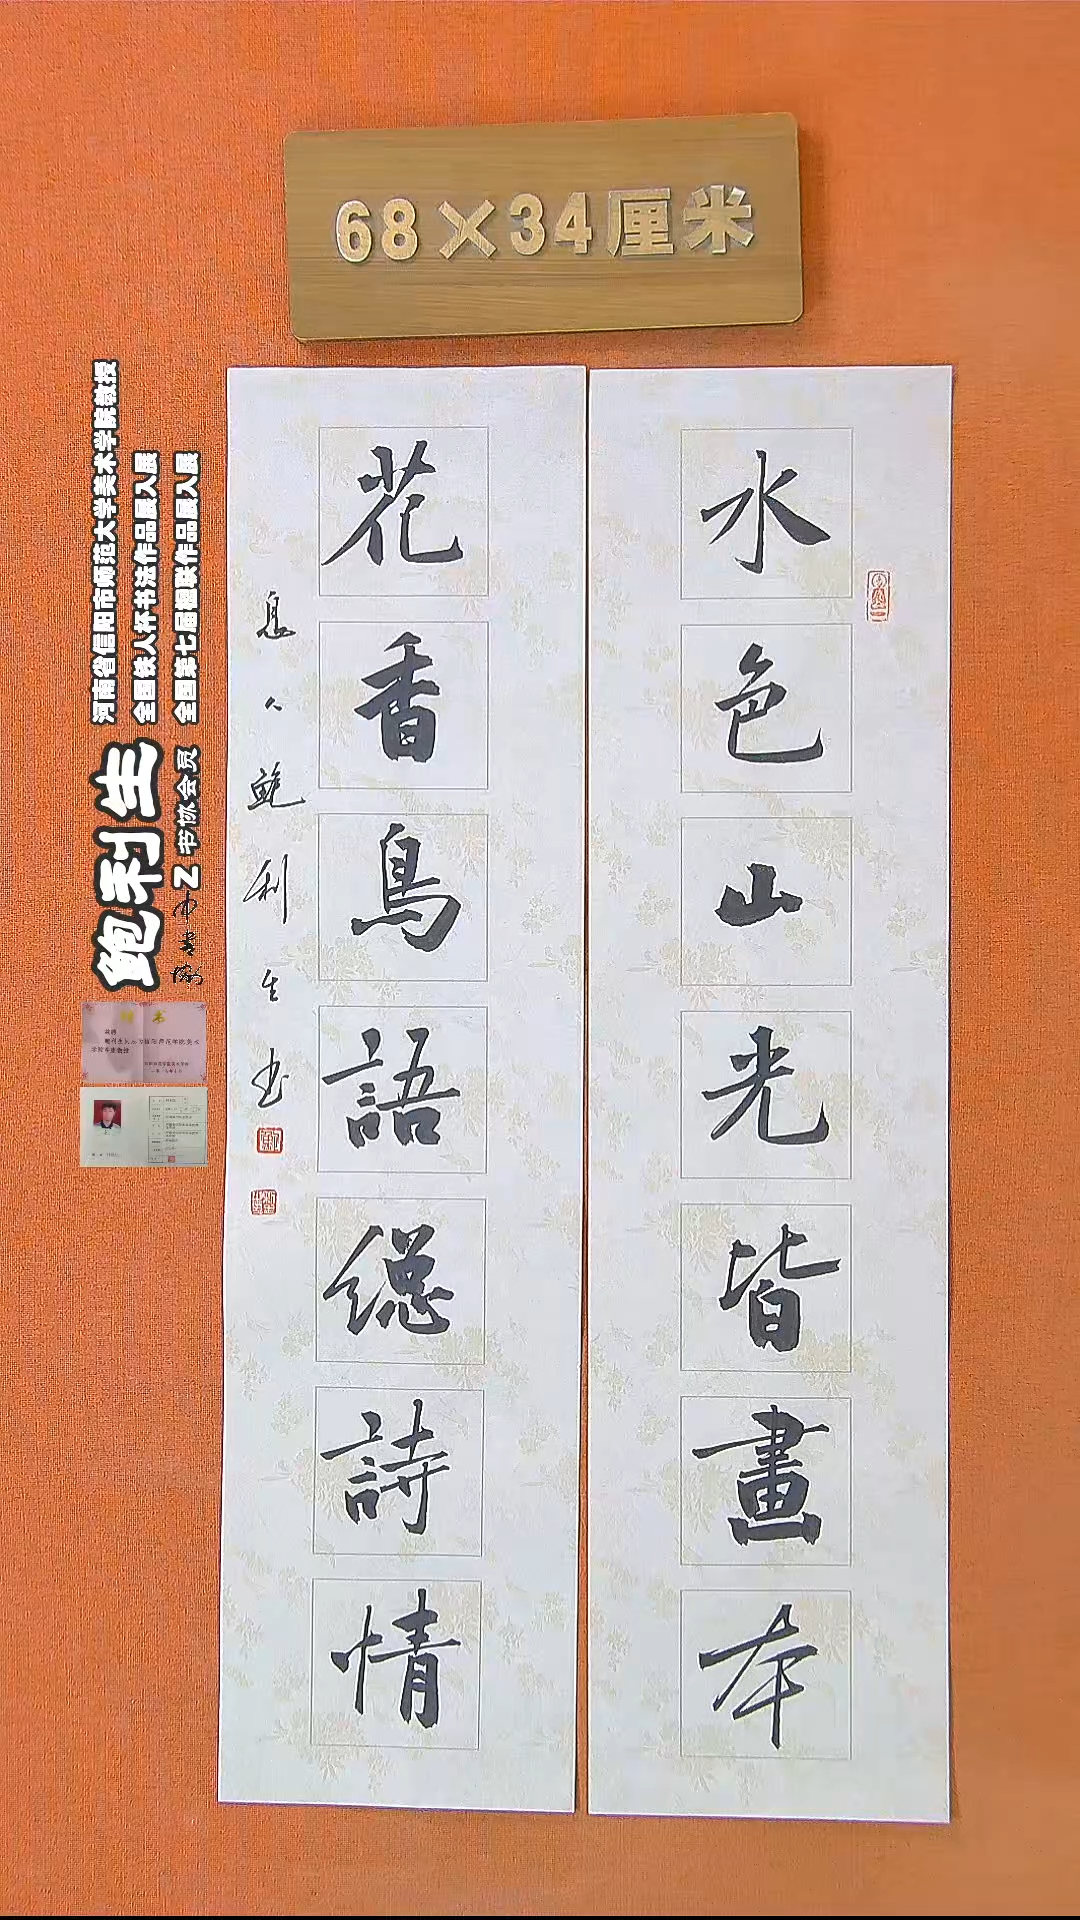 68×34厘米
水色山光皆畫本
花香鳥語總詩情
息人鲍利生书
河南省信阳市师范大学美术学院教授
全国铁人杯书法作品展入展
全国第七届楹联作品展入展
鲍利生
书协会员